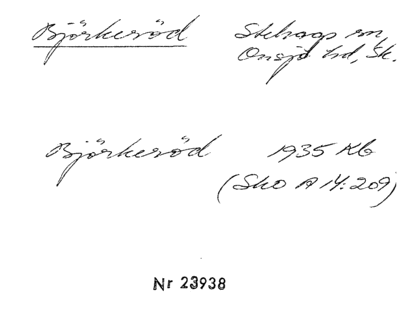 Björkeröd Stehags sn,
Onsjö hd, Sk.
Björkeröd 1935 Kb
(SkO A 14:209)
Nr 23938